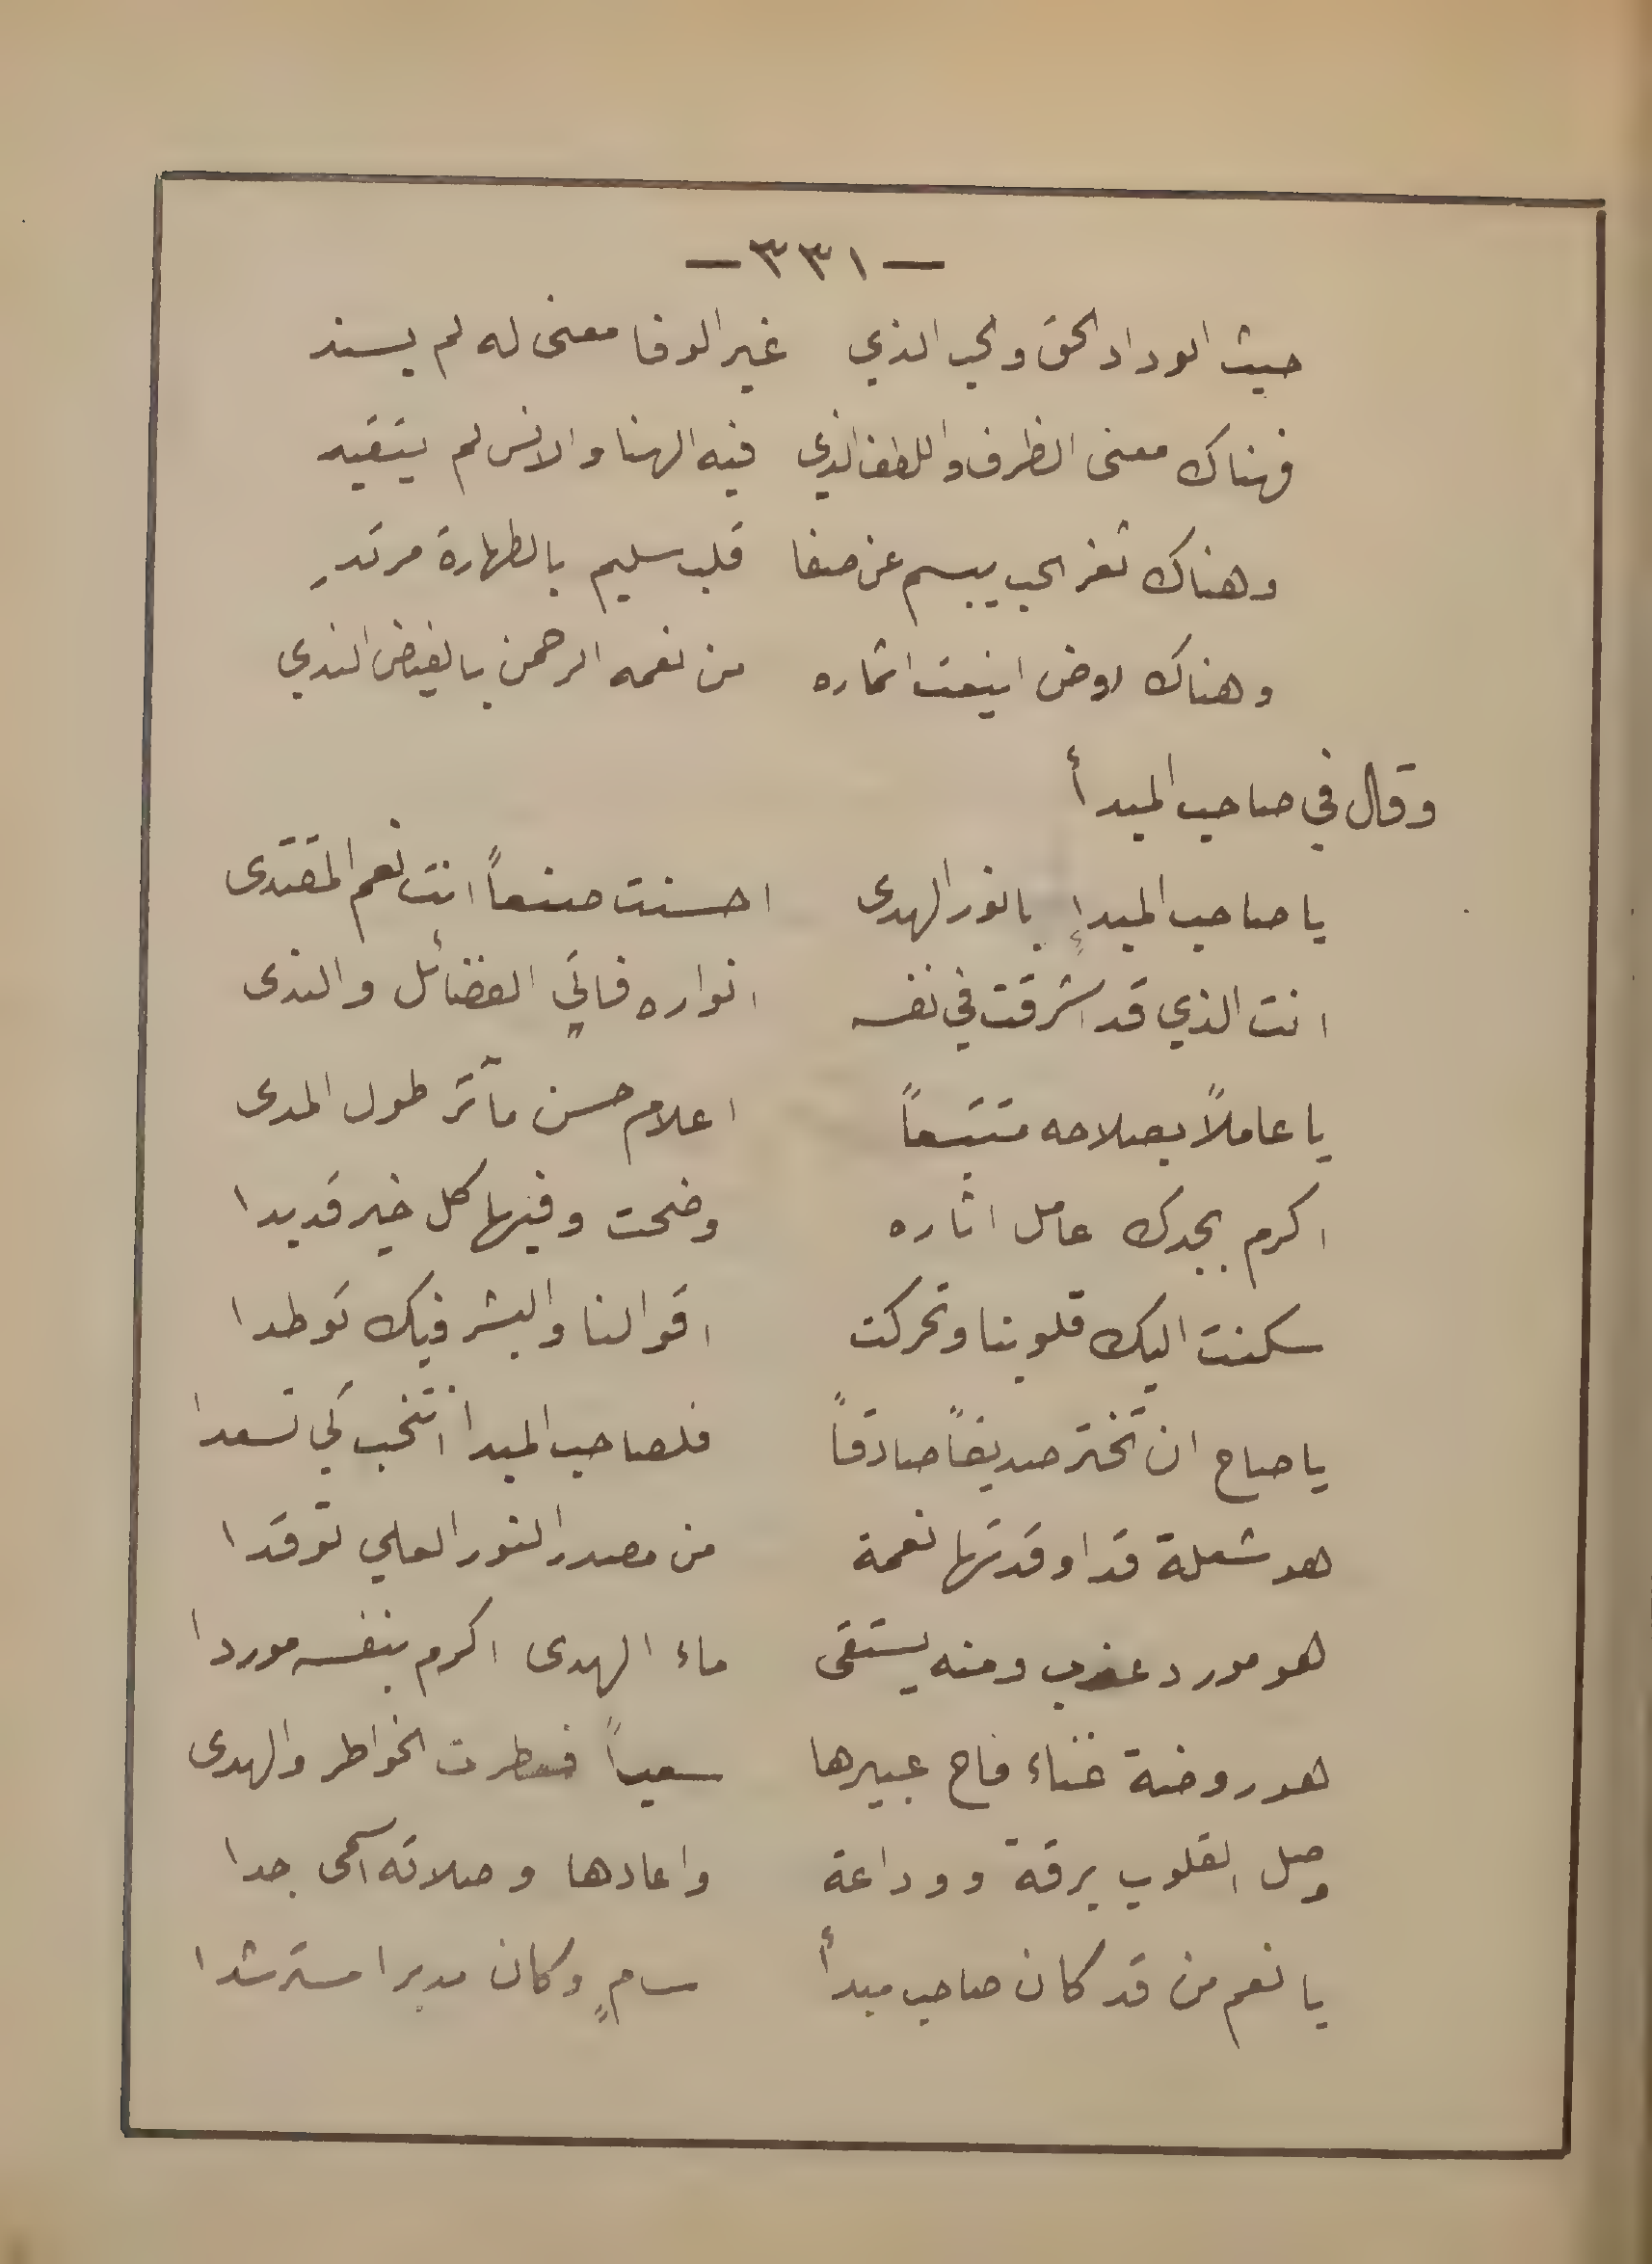 — ٣٣١ —
حيث الوداد الحق والحب الذي غير الوفا معنى له لم يسند
فهناك معنى الظرف واللطف الذي فيه الهنا والانس لم يتقيد
وهناك ثغر الحب يبسم عن صفا قلب سليم بالطهارة مرتدِ
وهناك روض اينعت اثماره من نعمه الرحمن بالفيض الندي
وقال في صاحب المبدأ
يا صاحب المبدإِ بانور الهدى احسنت صنعاً انت نعم المقتدى
انت الذي قد اشرقت في نفسه انواره فاتي الفضائل والندى
يا عاملاً بصلاحه متتبعاً اعلام حسن مآثر طول المدى
اكرم بجدك عامل اثاره وضحت وفيها كل خير قد بدا
سكنت اليك قلوبنا وتحركت اقوالنا والبشر فيك توطدا
يا صاح ان تختر صديقاً صادقاً فلصاحب المبدا انتخب كي تسعدا
هو شعلة قد اوقدتها نعمة من مصدر النور العلي توقدا
هو مورد عذب ومنه يستقى ماء الهدى اكرم بنفسه موردا
هو روضة غناء فاح عبيرها سعياً فعطرت الخواطر والهدى
وصل القلوب برقة ووداعة واعادها وصلاته اسمى جدا
يا نعم من قد كان صاحب مبدأ سامٍ وكان مدبرا مسترشدا